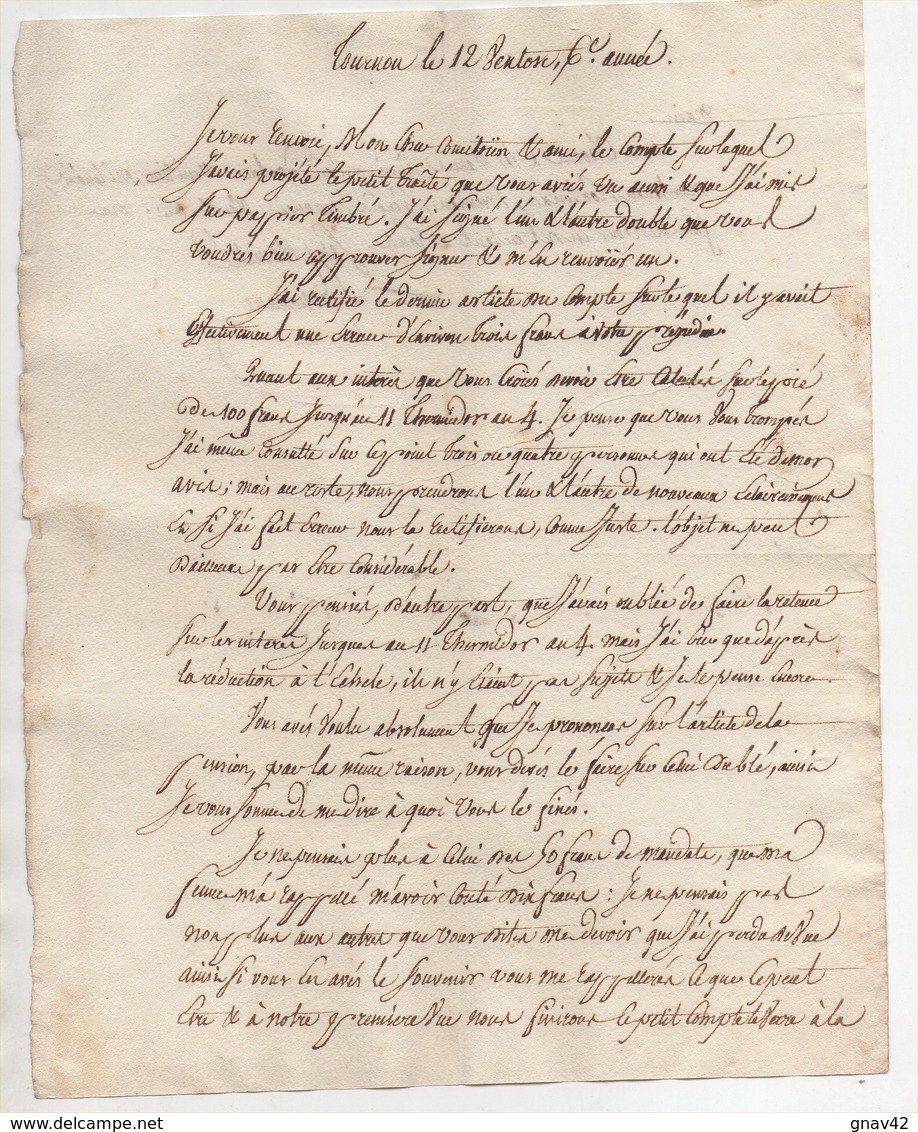 Tournon le 12 Ventose, 6e. année.
Je vous renvoie, Mon cher concitoïen & ami, le compte sur lequel
J'avais projété le petit traité que vous aviés vu aussi & que J'ai mis
sur pappier timbré. J'ai signé l'un & l'autre double que vous
voudrés bien approuver signer & m'en renvoïer un.
J'ai rectifié le dernier article du compte sur le quel il y avait
effectivement une erreur d'environ trois francs à votre préjudice
Quant aux intérès que vous croïés devoir être calculés sur le pié
de 100 francs Jusqu'au 11 thermidor an 4. Je pense que vous vous trompés
J'ai même consulté sur ce point trois ou quatre personnes qui ont été de mon
avis; mais au reste, nous prendrons l'un & l'autre de nouveaux éclaircissemens
Et si J'ai fait erreur nous la rectifierons, comme Juste. l'objet ne peut
d'ailleurs pas être considérable.
Vous pensiés, d'autre part, que J'avais oublié de faire la retenue
sur les intérès Jusques au 11 thermidor an 4. mais J'ai cru que d'après
la réduction à l'échele, ils n'y étaient pas sujets & Je le pense encore
Vous avés voulu absolument que Je prononças sur l'article de la
pension, par la même raison, vous devés le faire sur celui du blé, ainsi
Je vous somme de me dire à quoi vous le fixés.
Je ne pensais plus à celui des 50 francs de mandats, que ma
femme m'a rappellé m'avoir couté dix francs: Je ne pensais pas
non plus aux autres que vous dites me devoir que J'ai perdu de vue
ainsi si vous en avés le souvenir vous me rappellerés ce que ce peut
être & à notre premiere vue nous finirons ce petit compte le verre à la
delcampe.net
gnav42